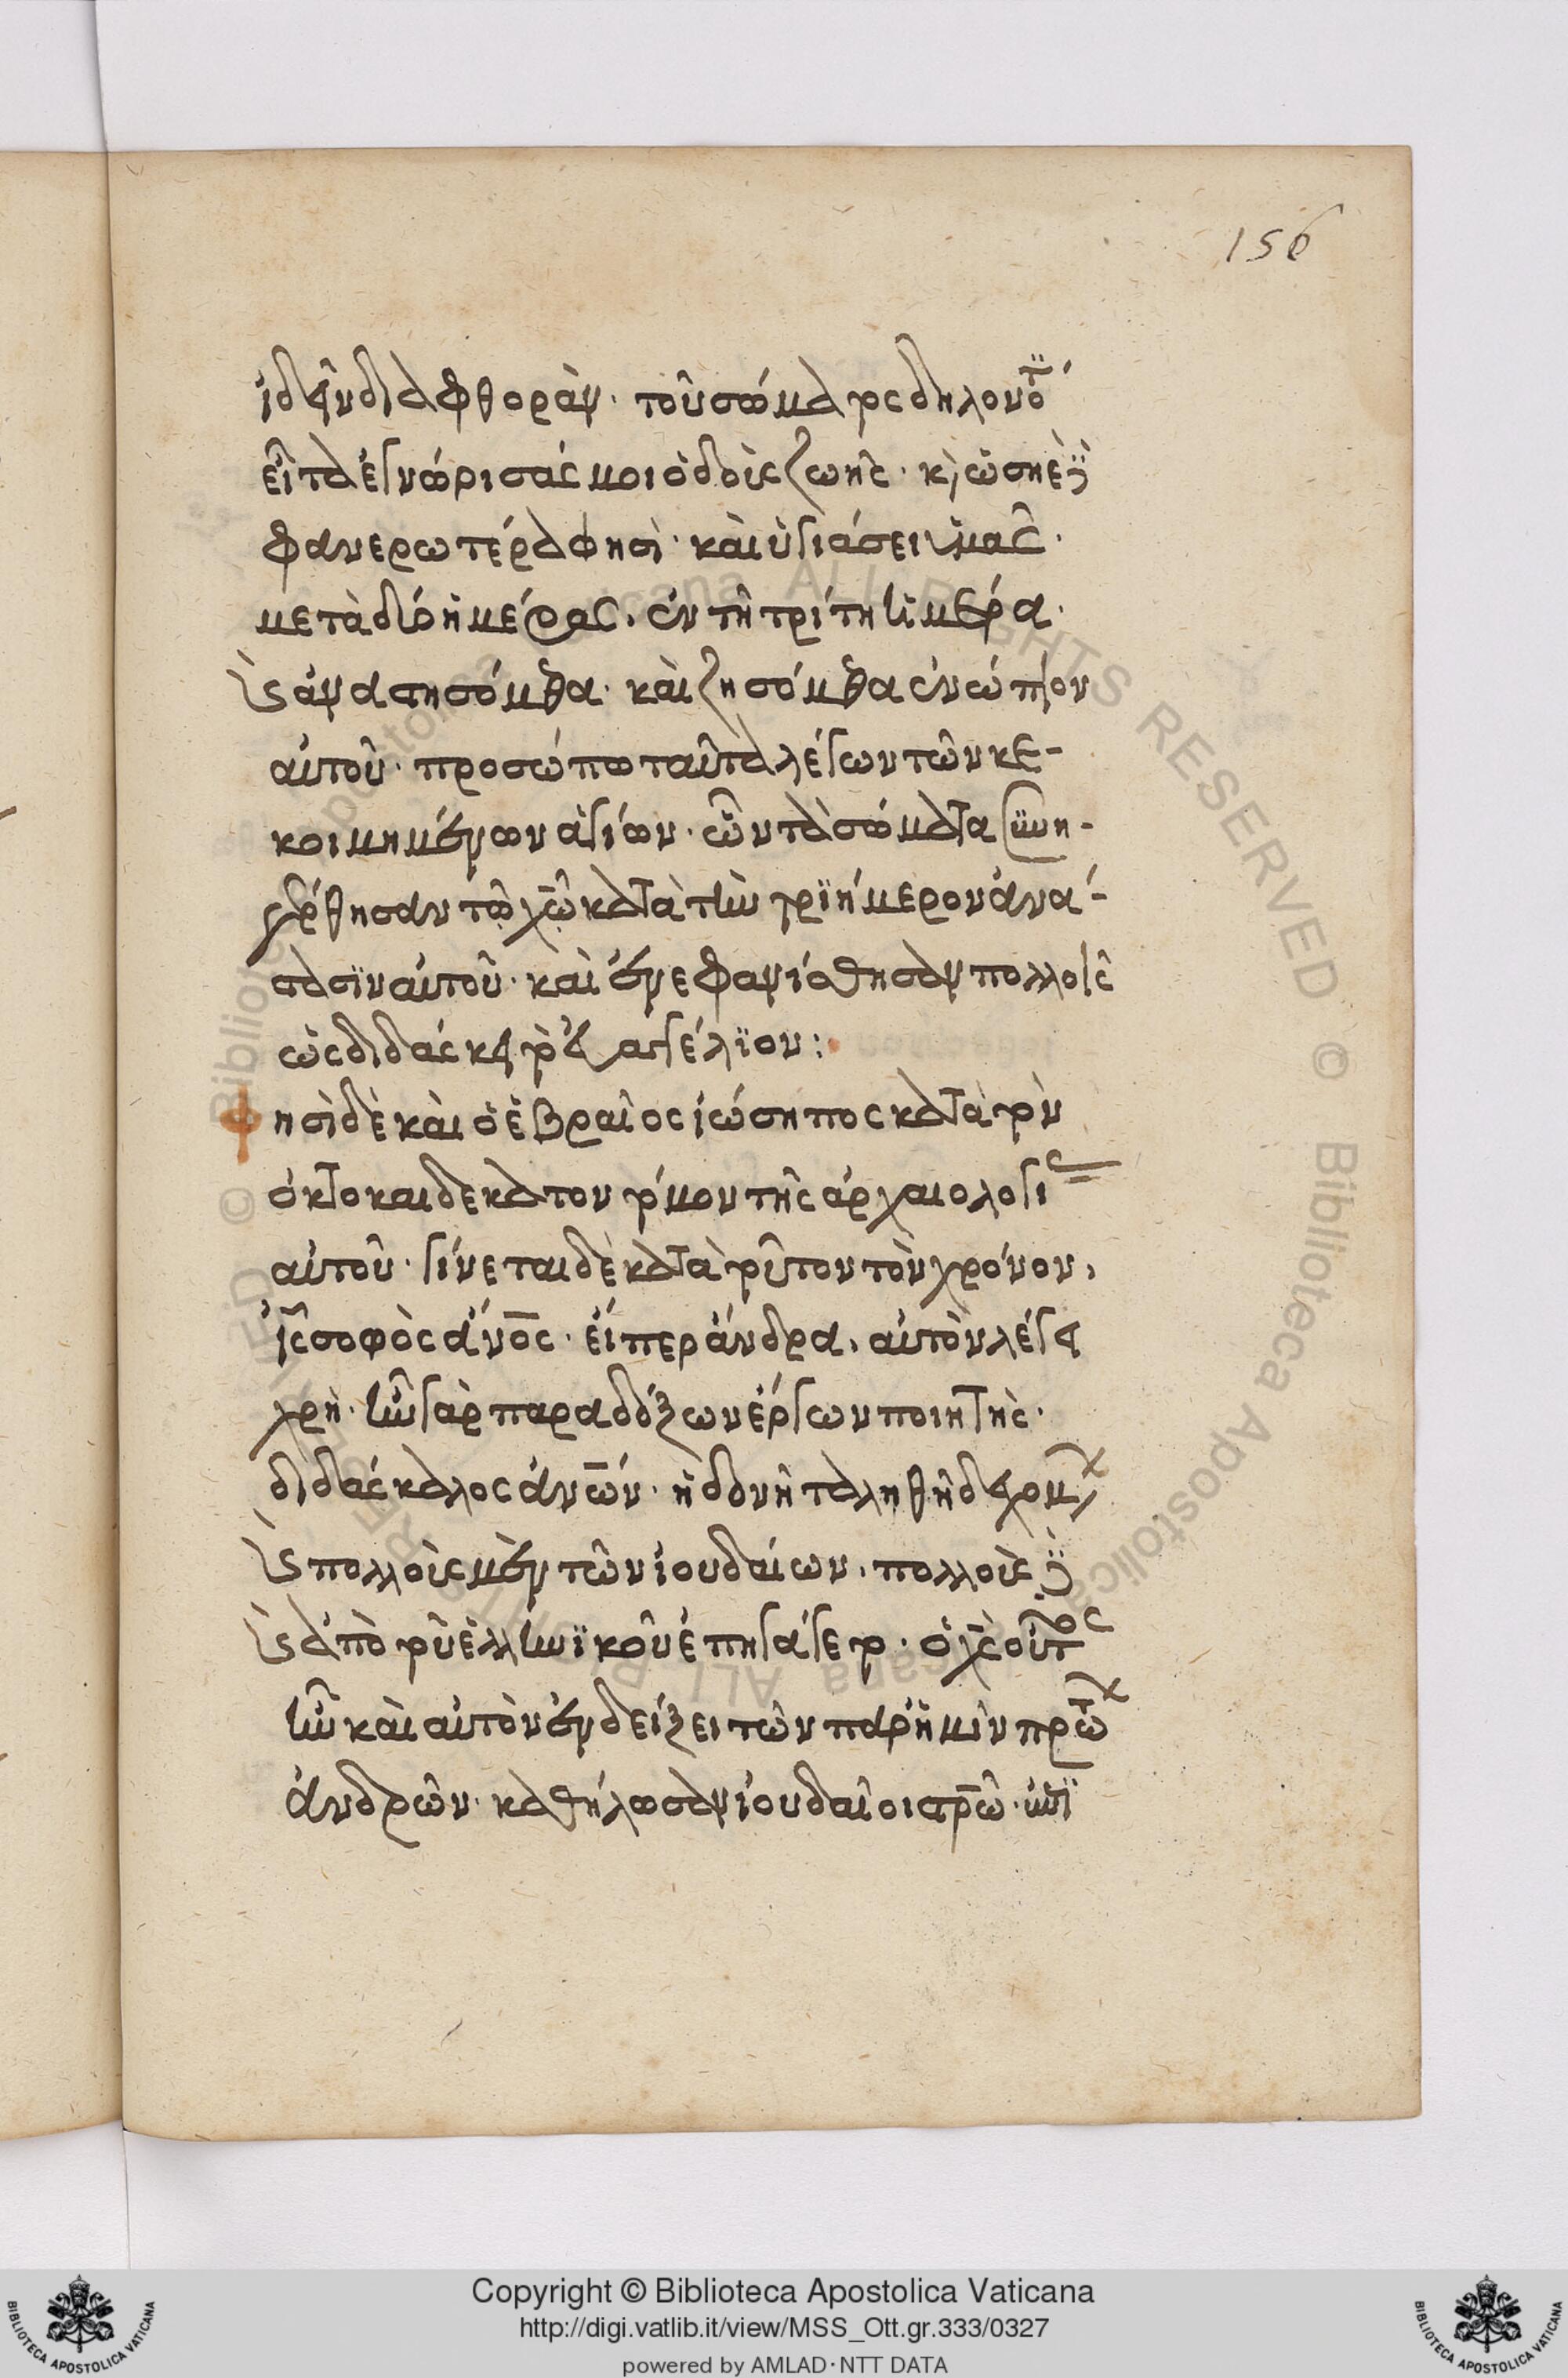 156
ἰδεῖν διαφθοράν· τοῦ σώματος δηλονότι
εἶτα ἐγνώρισάς μοι ὁδοὺς ζωῆς· κ ὡσηὲ δὲ
φανερωτέρα φησὶ· καὶ ὑγιάσει ἡμᾶς·
μετὰ δύο ἡμέρας, ἐν τῆ τρίτη ἡμέρα·
καὶ ἀναστησόμεθα· καὶ ζησόμεθα ἐνώπιον
αὐτοῦ· προσώπω ταῦτα λέγων τῶν κε-
κοιμημένων ἁγίων· ὧν τὰ σώματα συνη-
γέρθησαν τῶ χῶ κατὰ τὴν τριήμερον ἀνά-
στασιν αὐτοῦ· καὶ ἐνεφανίσθησαν πολλοῖς
ὡς διδάσκει τὸ εὐαγγέλιον:
Φησὶ δὲ καὶ ὁ ἑβραῖος ἰώσηπος κατὰ τὸν
ὀκτοκαιδέκατον τόμον τῆς ἀρχαιολογίας
αὐτοῦ· γίνεται δὲ κατὰ τοῦτον τὸν χρόνον,
ἰς σοφὸς ἄνος· εἴπερ ἄνδρα, αὐτὸν λέγειν
χρή· ἦν γὰρ παραδόξων ἔργων ποιητής·
διδάσκαλος ἀνων· ἡδονῆ τἀληθῆ δεχομένων
καὶ πολλοὺς μὲν τῶν ἰουδαίων, πολλοὺς δὲ
καὶ ἀπὸ τοῦ ἑλληνικοῦ ἐπηγάγετο· ὁ χς οὗτος
ἦν καὶ αὐτὸν ἐνδείξει τῶν παρ ἡμῖν πρώτων
ἀνδρῶν· καθήλωσαν ἰουδαῖοι στρῶ·
Copyright © Biblioteca Apostolica Vaticana
http://digi.vatlib.it/view/MSS_Ott.gr.333/0327
powered by AMLAD·NTT DATA